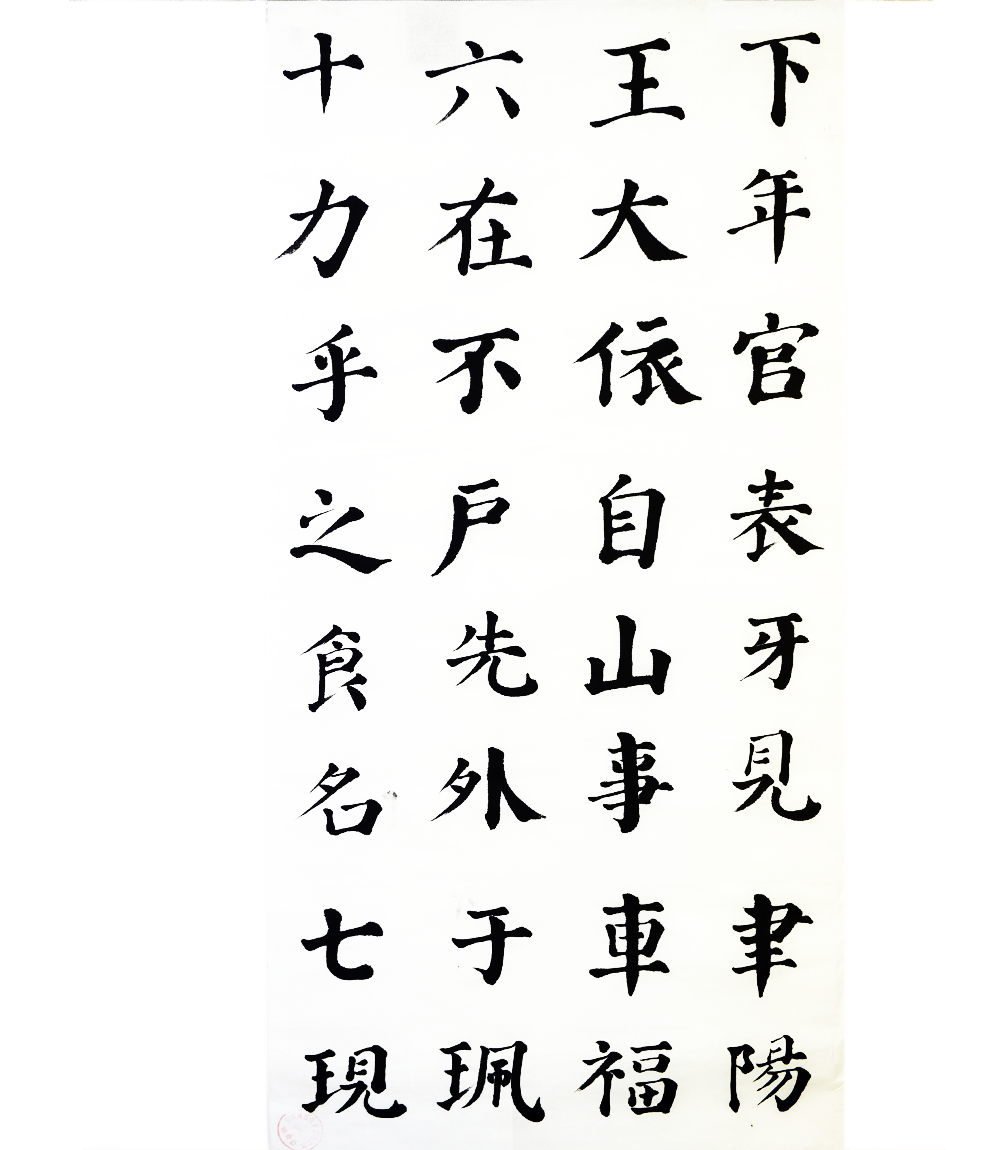 下年官表牙見聿陽
王大依自山事車福
六在不戶先外于珮
十力乎之食名七現